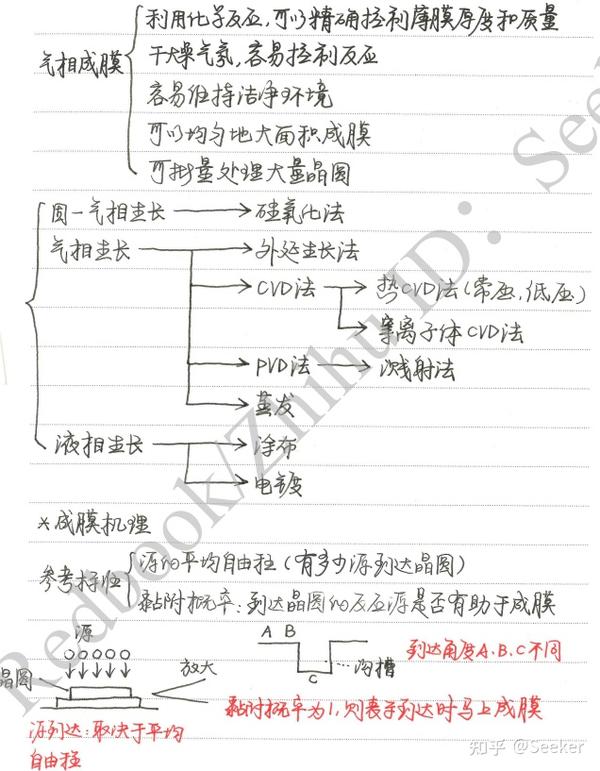 气相成膜
利用化学反应,可以精确控制薄膜厚度和质量
干燥气氛,容易控制反应
容易维持洁净环境
可以均匀地大面积成膜
可批量处理大量晶圆
固一气相生长
硅氧化法
气相生长
外延生长法
CVD法
热CVD法(常压,低压)
等离子体CVD法
PVD法
溅射法
蒸发
液相生长
涂布
电镀
*成膜机理
参考标准
源的平均自由程(有多少源到达晶圆)
黏附概率:到达晶圆的反应源是否有助于成膜
源
晶圆
放大
A B
C
沟槽
到达角度A、B、C不同
黏附概率为1,则表示到达时马上成膜
源到达:取决于平均
自由程
Redbook/Zhihu ID: See
知乎 @Seeker